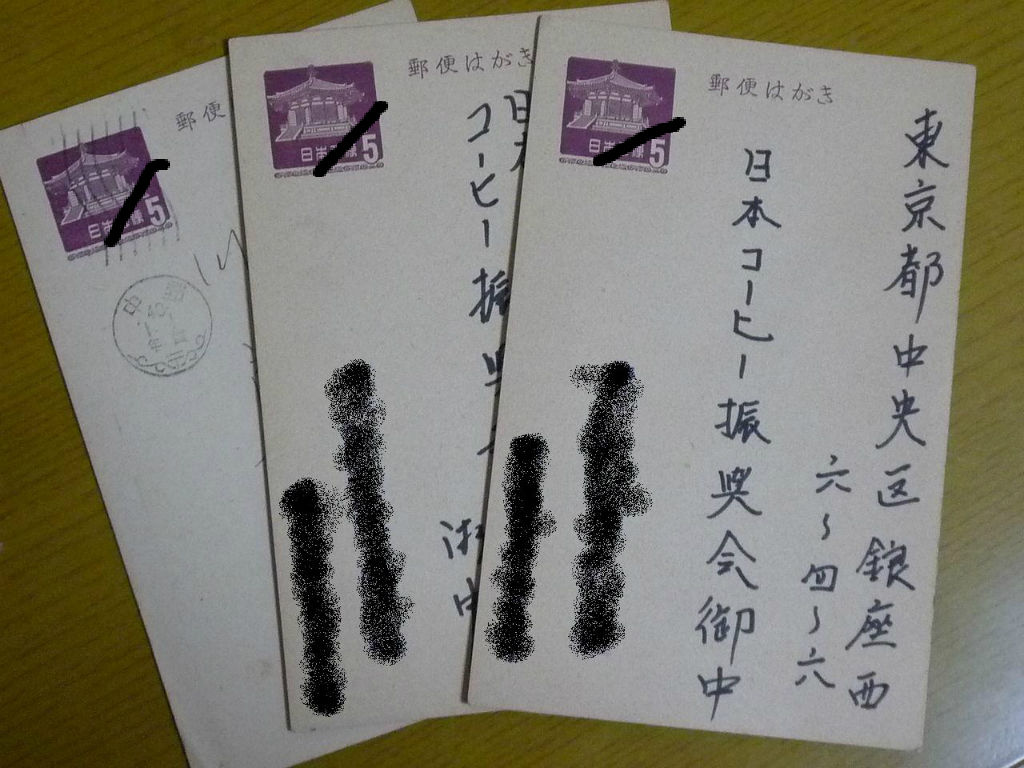 郵便はがき
日本郵便
5
東京都中央区銀座西
六〜四〜六
日本コーヒー振興会御中
郵便はがき
日本郵便
5
日本
コーヒー振興会
中
郵便
日本郵便
5